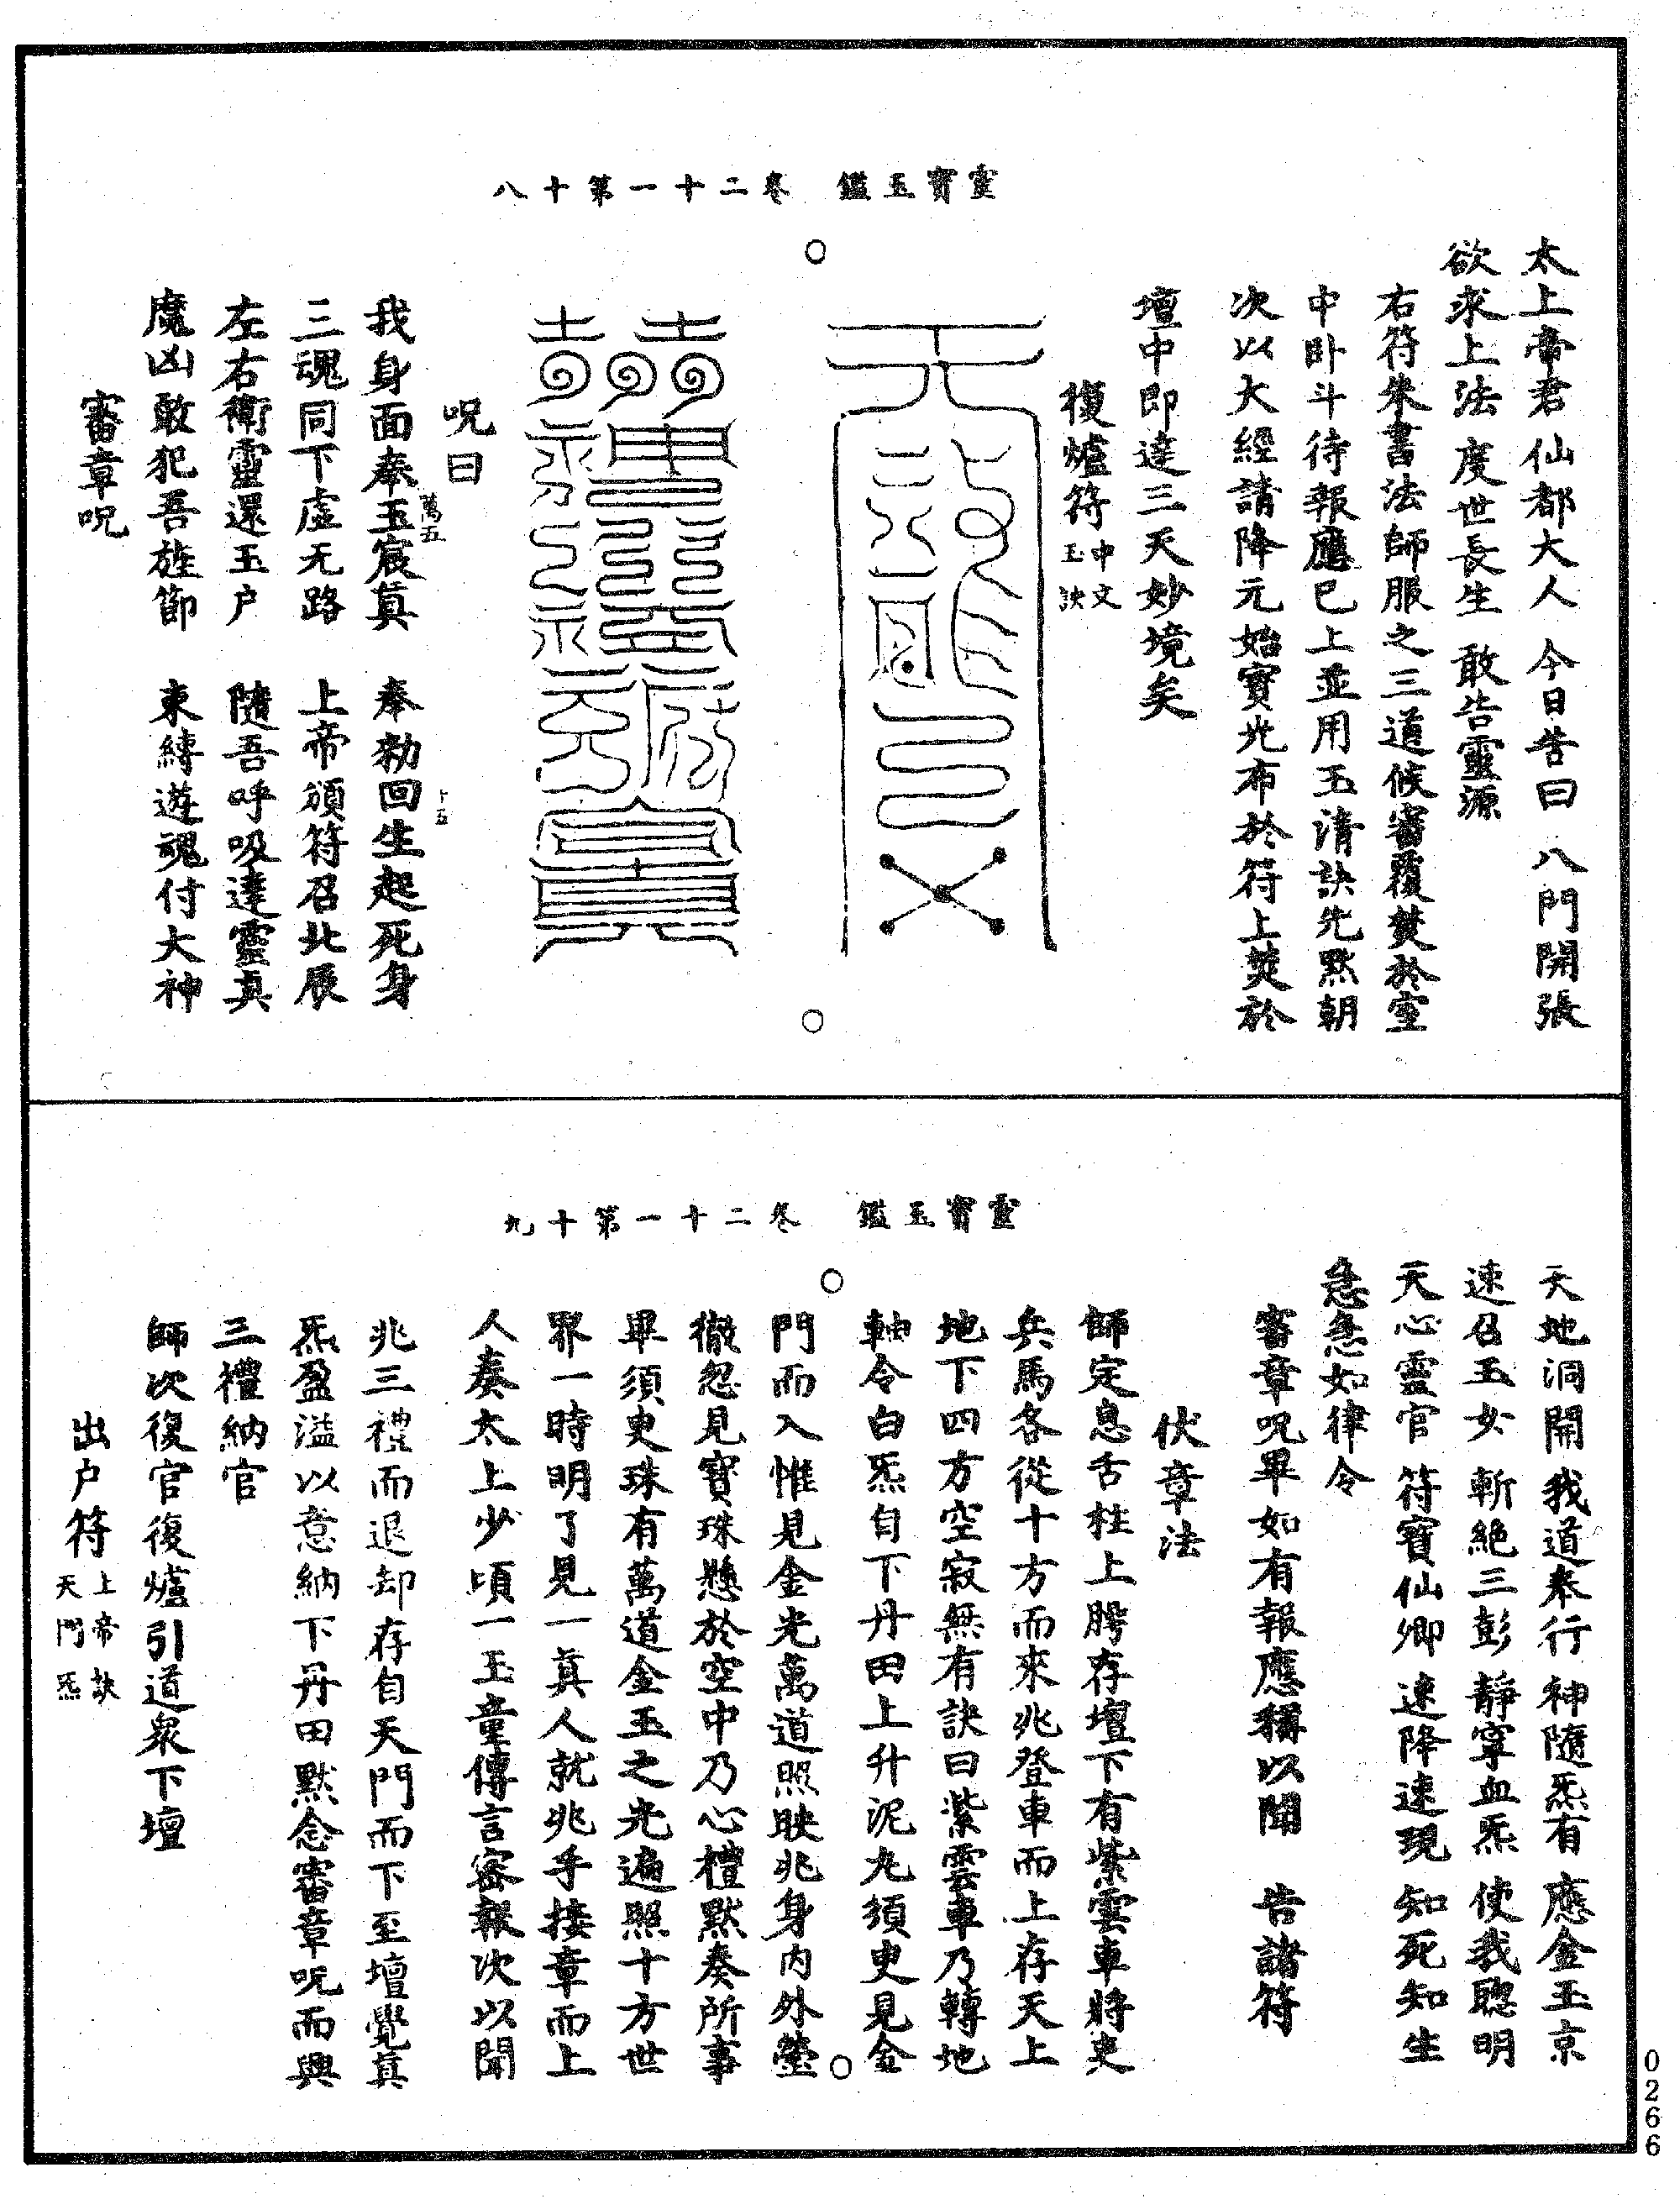 靈寶玉鑑　卷二十一第十八
太上帝君　仙都大人　今日告曰　八門開張
欲求上法　度世長生　敢告靈源
右符朱書法師服之三道候審覆焚於室
中卧斗待報應已上並用玉清訣先黙朝
次以大經請降元始寶光布於符上焚於
壇中即達三天妙境矣
復爐符中文玉訣
呪曰
萬五
十五
我身面奉玉宸眞　奉勑回生起死身
三魂同下虛无路　上帝頒符召北辰
左右衛靈還玉户　隨吾呼吸達靈真
魔凶敢犯吾旌節　東縛遊魂付大神
審章呪
靈寶玉鑑　卷二十一第十九
天地洞開　我道奉行　神隨炁有　應金玉京
速召玉女　斬絶三彭　靜寧血炁　使我聰明
天心靈官　符寶仙卿　速降速現　知死知生
急急如律令
審章呪畢如有報應稱以聞　告諸符
伏章法
師定息舌柱上腭存壇下有紫雲車將吏
兵馬各從十方而來兆登車而上存天上
地下四方空寂無有訣曰紫雲車乃轉地
軸令白炁自下丹田上升泥丸須臾見金
門而入惟見金光萬道照映兆身内外瑩
徹忽見寶珠懸於空中乃心禮黙奏所事
畢須臾珠有萬道金玉之光遍照十方世
界一時明了見一眞人就兆手接章而上
人奏太上少頃一玉童傳言審報次以聞
兆三禮而退却存自天門而下至壇覺眞
炁盈溢以意納下丹田黙念審章呪而興
三禮納官
師次復官復爐引道衆下壇
出户符上帝訣天門炁
0266